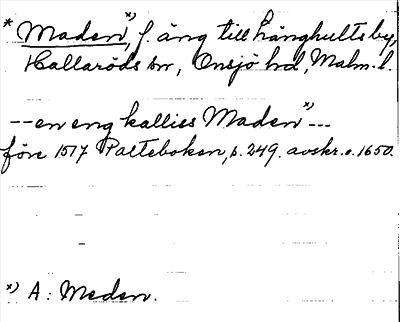 * Maden*), f. äng till Långhults by,
Hallaröds sn, Onsjö hd, Malm. l.
-- en eng kallies Maden*) ---
före 1517 Palteboken, s. 249. avskr. c. 1650.
*) A: Meden.